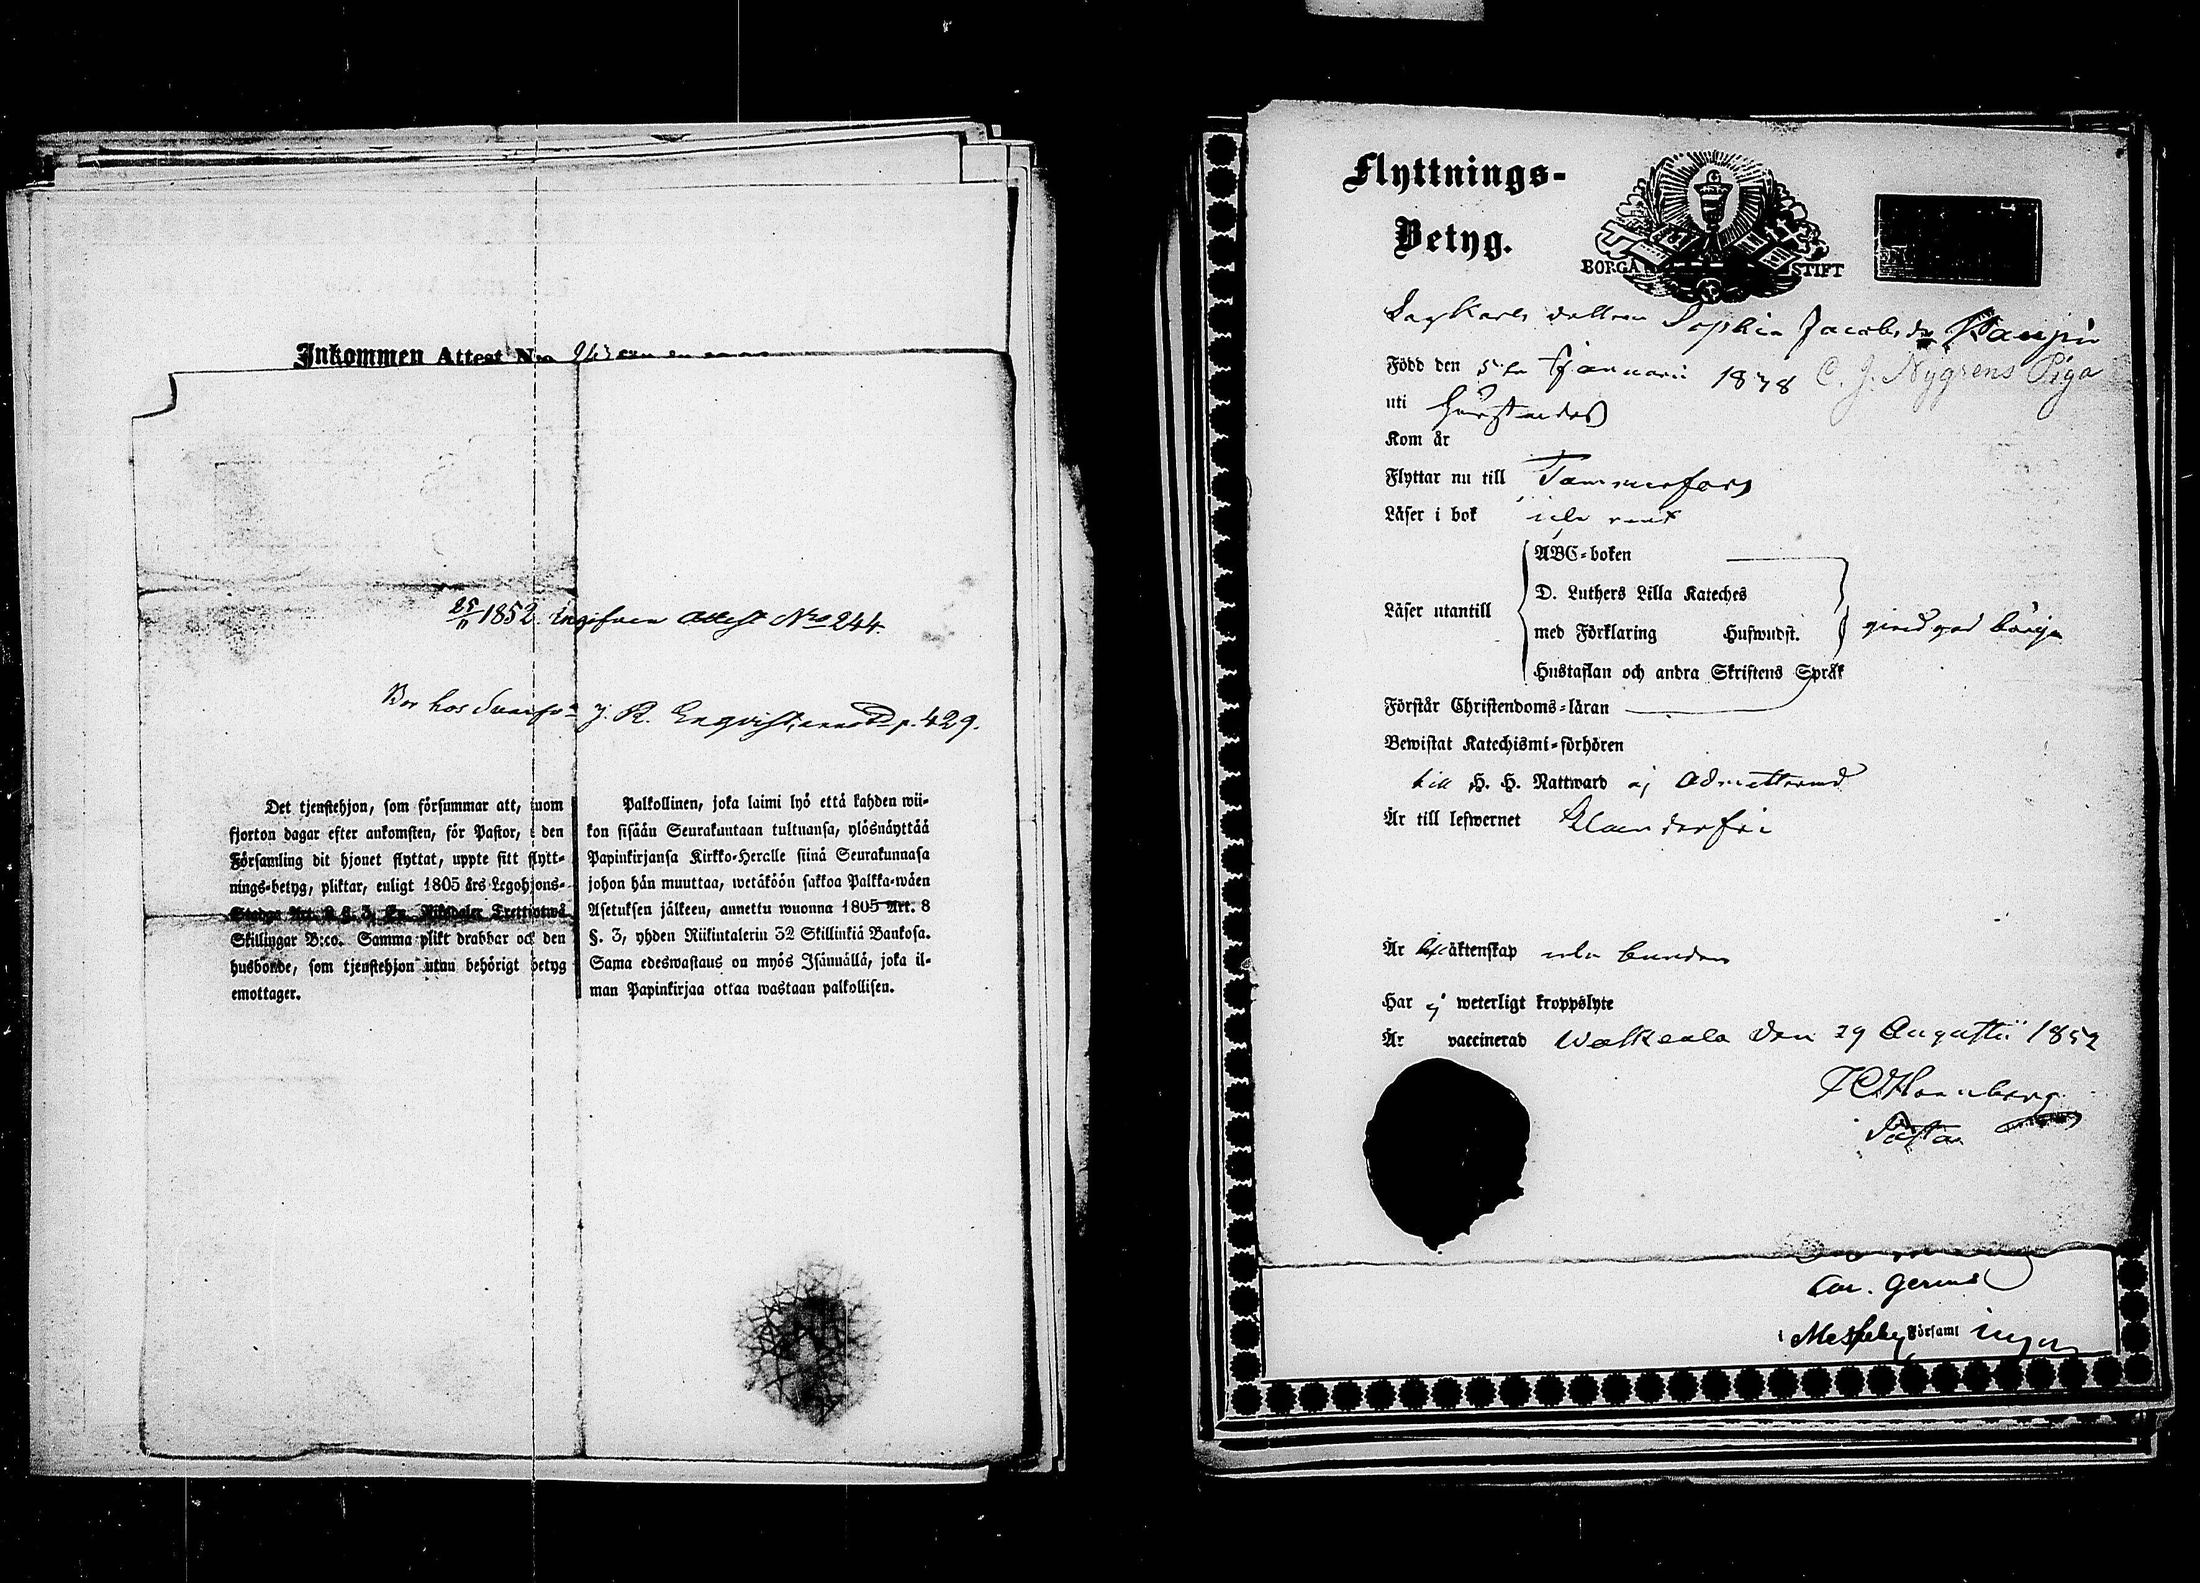 Inkommen Attest N:o 243
25/11 1852. Ingifven Attest No 244.
Bor hos J. R. Enqvist, p. 429.
Det tjenstehjon, som försummar att, inom
fjorton dagar efter ankomsten, för Pastor, i den
Församling dit hjonet flyttat, uppte sitt flytt-
nings-betyg, pliktar, enligt 1805 års Legohjons-
Stadga Art. 8 §. 3, En Riksdaler Trettiotwå
Skillingar B:co. Samma plikt drabbar ock den
husbonde, som tjenstehjon utan behörigt betyg
emottager.
Palkollinen, joka laimi lyö että kahden wii-
kon sisään Seurakuntaan tultuansa, ylösnäyttää
Papinkirjansa Kirkko-Heralle siinä Seurakunnasa
johon hän muuttaa, wetäköön sakkoa Palkka-wäen
Asetuksen jälkeen, annettu wuonna 1805 Art. 8
§. 3, yhden Riikintalerin 32 Skillinkiä Bankosa.
Sama edeswastaus on myös Isännällä, joka il-
man Papinkirjaa ottaa wastaan palkollisen.
Flyttnings-
Betyg.
BORGÅ STIFT
dottren Sophia Jacobsdr Kaupin
Född den 5te Januarii 1838 C. J. Nygrens Piga
uti
Kom år
Flyttar nu till Tammerfors
Läser i bok
ABC-boken
D. Luthers Lilla Kateches
Läser utantill med Förklaring Huswudst.
Hustaflan och andra Skriftens Språk
Förstår Christendoms-läran
Bewistat Katechismi-förhören
till H. H. Nattward ej admitterad
Är till lefwernet klanderfri
Är till äktenskap icke bunden
Har ej weterligt kroppslyte
Är vaccinerad Walkeala den 29 Augustii 1852
Församl